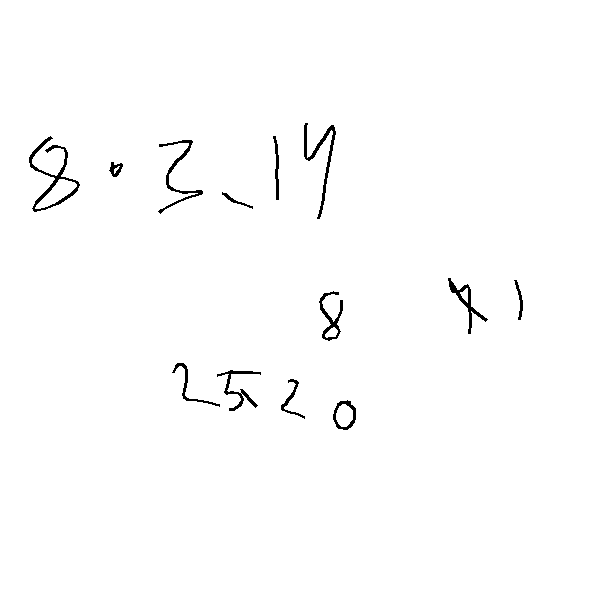 8 · 3.14
8
25.20